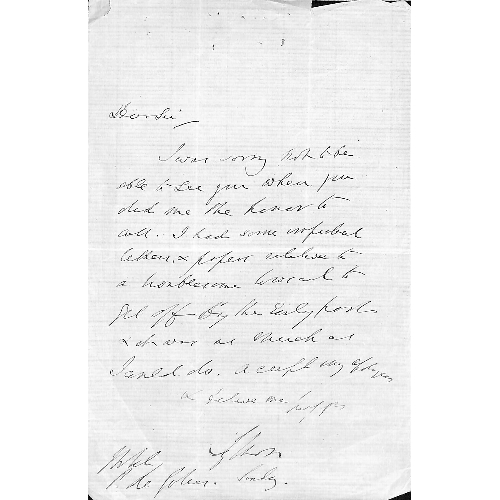 Dear Sir,
I was sorry not to be
able to see you when you
did me the honor to
call. I had some important
letters & papers relative to
a troublesome lawsuit to
get off by the Early post -
& it was as much as
I could do. accept my apologies
& believe me